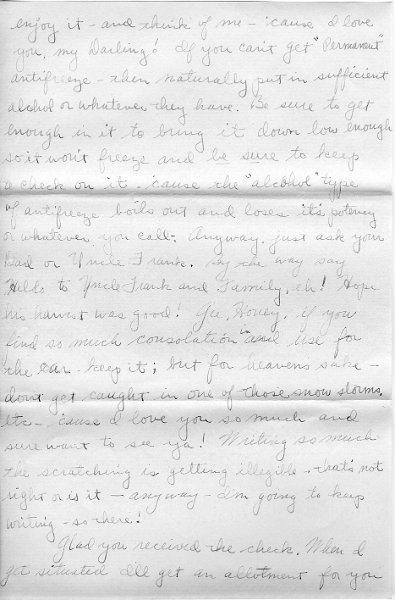 enjoy it - and think of me - 'cause I love
you, my Darling! If you can't get "Permanent"
antifreeze - then naturally put in sufficient
alchol or whatever they have. Be sure to get
enough in it to bring it down low enough
so it won't freeze and be sure to keep
a check on it - 'cause the "alcohol" type
of antifreeze boils out and loses it's potency
or whatever you call. Anyway, just ask your
Dad or Uncle Frank. By the way say
Hello to Uncle Frank and Family, eh! Hope
his harvest was good! Gee, Honey, if you
find so much consolation and use for
the car - keep it; but for heavens sake -
don't get caught in one of those snow storms,
etc - 'cause I love you so much and
sure want to see ya! Writing so much
the scratching is getting illegible, - that's not
right or is it - anyway - I'm going to keep
writing - so there!
Glad you received the check. When I
get situated I'll get an allotment for you